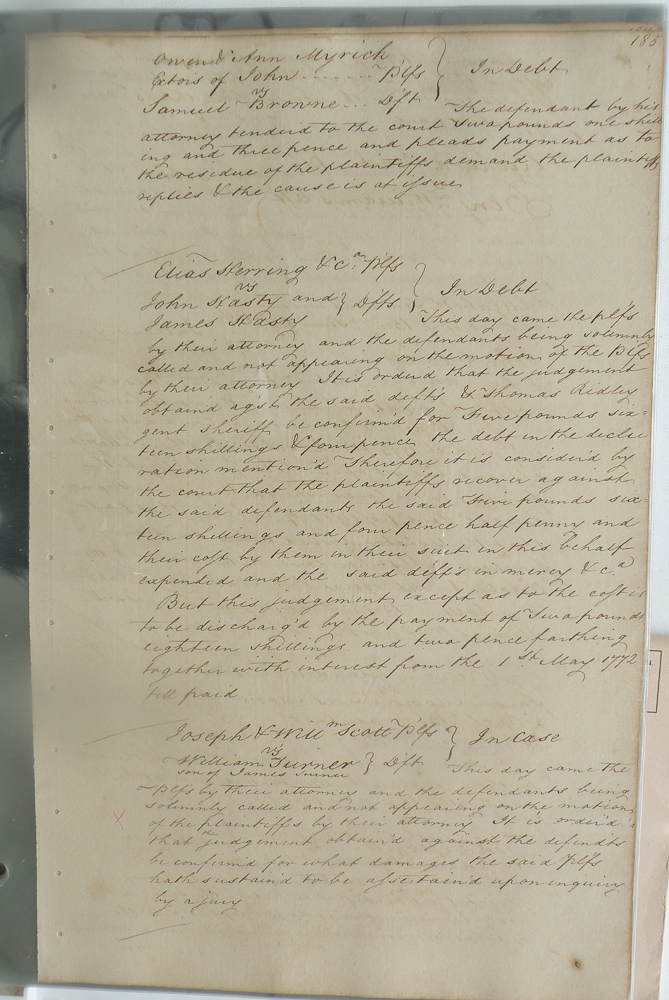 185
Owen & Ann Myrick
Extors of John ........ Plfs } In Debt
vs
Samuel Browne ... Dft The defendant by his
attorney tenderd to the court Two pounds one shill
ing and three pence and pleads payment as to
the residue of the plaintiffs demand the plaintiff
replies & the cause is at issue
Elias Herring & Ca. Plfs
vs } In Debt
John Hasty and } Dfts
James Hasty This day came the plfs
by their attorney and the defendants being solemnly
called and not appearing on the motion of the Plfs
by their attorney It is orderd that the judgement
obtaind agst the said defts & Thomas Ridley
gent sheriff be confirm'd for Five pounds six=
teen shillings & four pence the debt in the decla
ration mention'd Therefore it is consider'd by
the court that the plaintiffs recover against
the said defendants the said Five pounds six=
teen shillings and four pence half penny and
their cost by them in their suit in this behalf
expended and the said deffs in mercy & ca
But this judgement except as to the cost is
to be discharg'd by the payment of Two pounds
eighteen shillings and two pence farthing
together with interest from the 1st May 1772
till paid
Joseph & Willm Scott Plfs } In Case
vs
William Turner } Dft This day came the
son of James Turner
Plfs by their attorney and the defendants being
solemnly called and not appearing on the motion
of the plaintiffs by their attorney It is order'd
that the judgement obtain'd against the defendts
be confirm'd for what damages the said Plfs
hath sustain'd to be assertain'd upon inquiry
by a jury